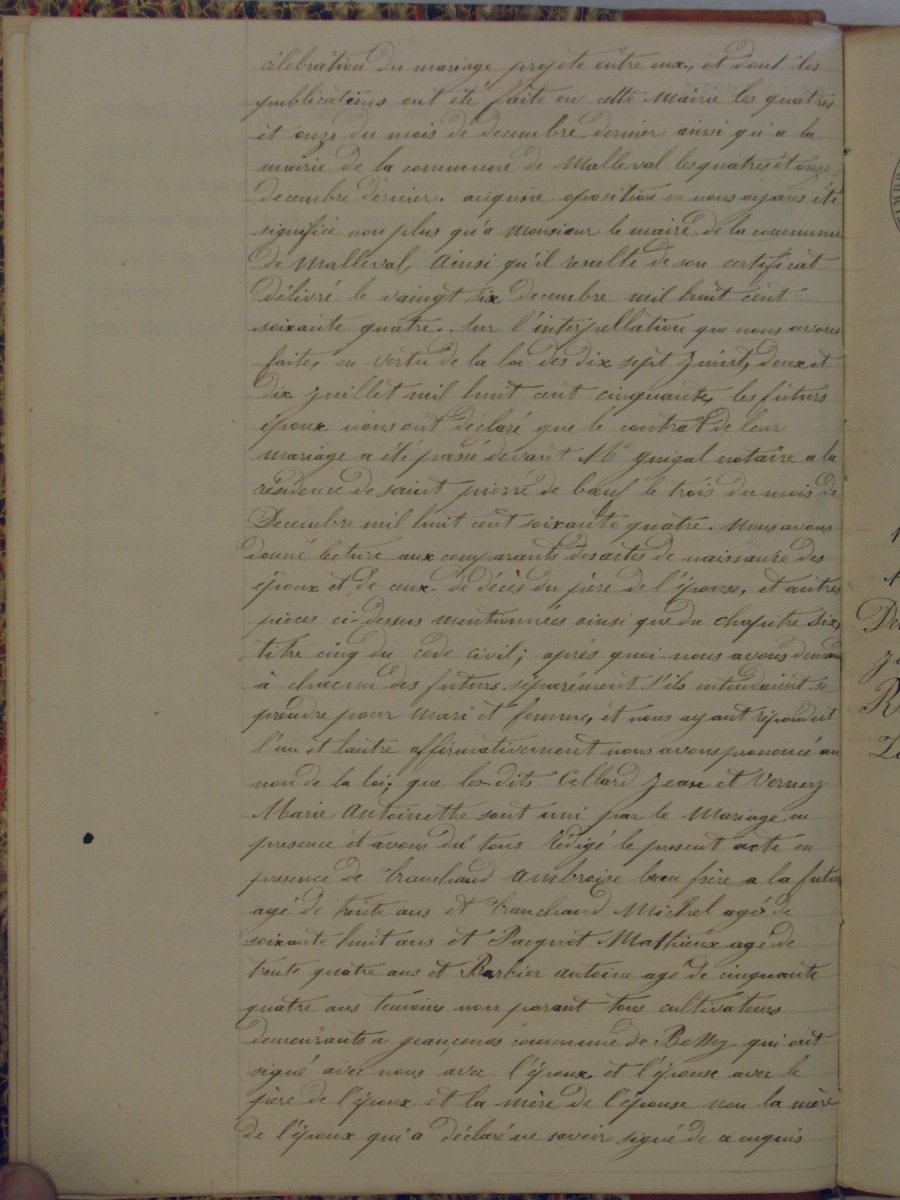 célébration du mariage projeté entre eux, et dont les
publications ont été faite en cette Mairie les quatres
et onze du mois de decembre dernier ainsi qu'a la
mairie de la commune de Malleval les quatres et onze
decembre dernier. aucune oposition ne nous ayans été
signifiée non plus qu'a Monsieur le maire de la commune
de Malleval, Ainsi qu'il resulte de son certificat
délivré le vaingt six decembre mil huit cent
soixante quatre. Sur l'interpellation que nous avons
faites en vertu de la loi des dix sept Juint, deux et
dix juillet mil huit cent cinquante, les futurs
époux nous ont déclaré que le contrat de leur
mariage a été passé devant Me Guigal notaire a la
résidence de saint pierre de boeuf le trois du mois de
Decembre mil huit cent soixante quatre. Nous avons
donné lecture aux comparants des actes de naissance des
époux et de ceux de décès du père de l'épouse, et autres
pieces ci-dessus mentionnées ainsi que du chapitre six,
titre cinq du code civil; après quoi nous avons demandé
à chacun des futurs séparément s'ils entendaient se
prendre pour mari et femme, et nous ayant répondut
l'un et lautre affirmativement nous avons prononcé au
non de la loi, que les-dits Cellard Jean et Vernay
Marie Antoinette sont uni par le Mariage en
presence et avons du tous rédigé le present acte en
presence de tranchand Ambroise beau frère a la future
agé de trente ans et tranchand Michel agé de
soixante huit ans et Pacquet Mathieux agé de
trente quatre ans et Barbier Antoine agé de cinquante
quatre ans témoins non parant tous cultivateurs
demeurants a commune de Bessey qui ont
signé avec nous avec l'époux et l'épouse avec le
père de l'époux et la mère de l'épouse non la mère
de l'époux qui a déclaré ne savoir signé de ce enquis